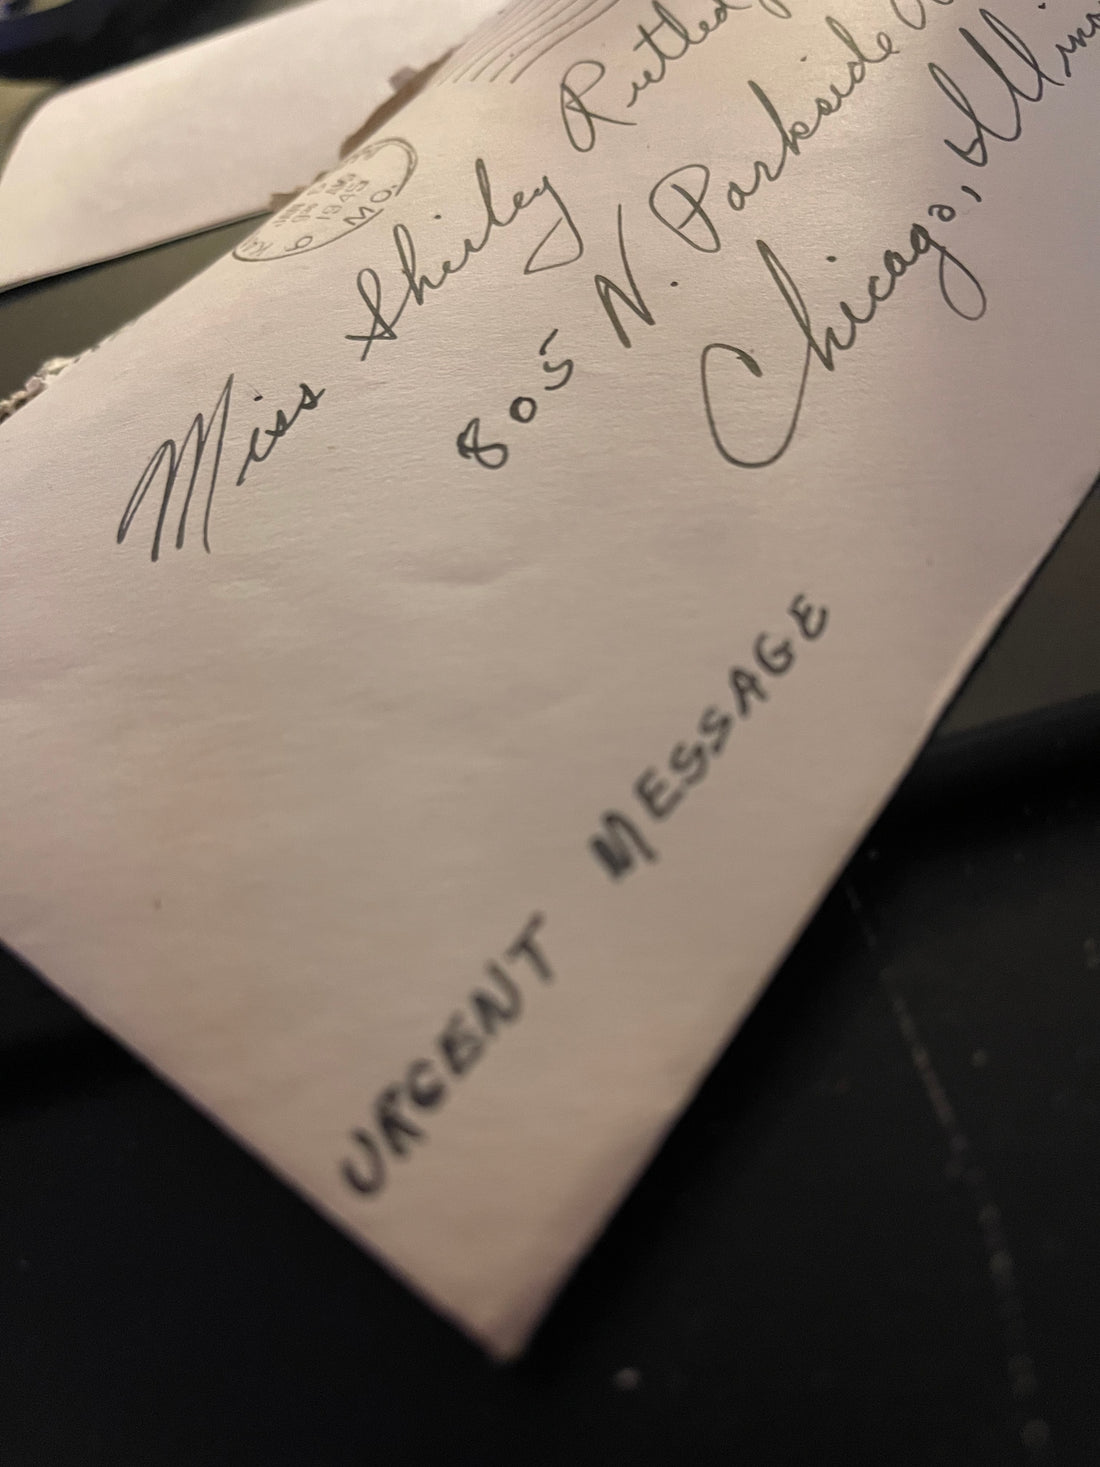 1945
MO.
Miss Shirley Rutled
805 N. Parkside
Chicago, Illin
URGENT MESSAGE